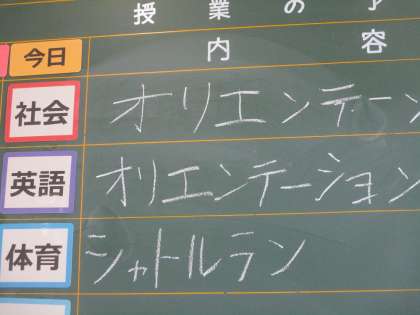 授業の予
今日 内容
社会 オリエンテーシ
英語 オリエンテーション
体育 シャトルラン